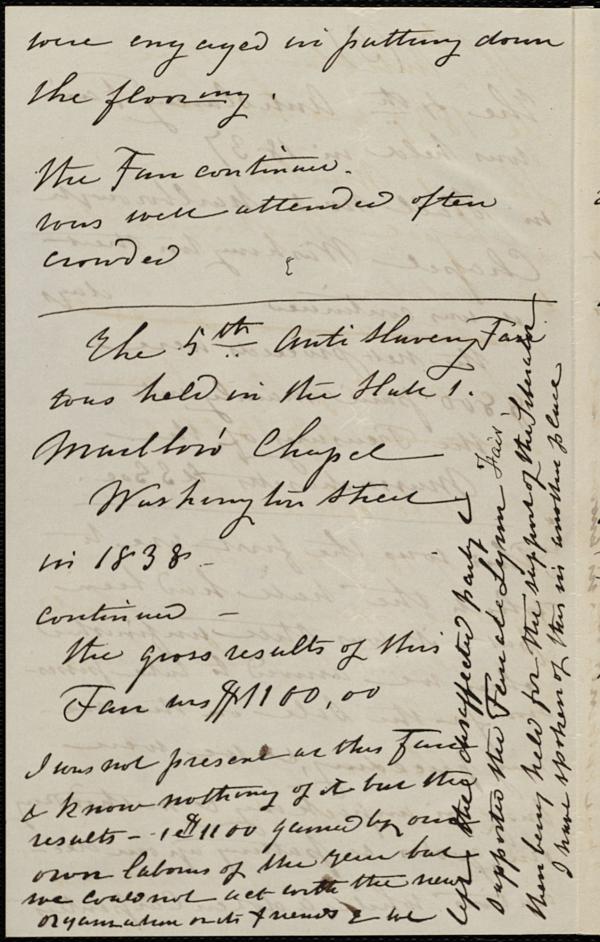 were engaged in putting down
the flooring.
the Fair continued.
was well attended often
crowded
The 5th Anti Slavery Fair
was held in the Hall 1.
Marlboro' Chapel
Washington Street
in 1838 -
continued -
the gross results of this
Fair was $1100,00
I was not present at this Fair
& know nothing of it but the
results - $1100 gained by our
own labours of the year but
we could not act with the new
organization or its friends & we
left the disaffected party &
supported the Female Lynn Fair
then being held for the support of the Liberator
I have spoken of this in another place